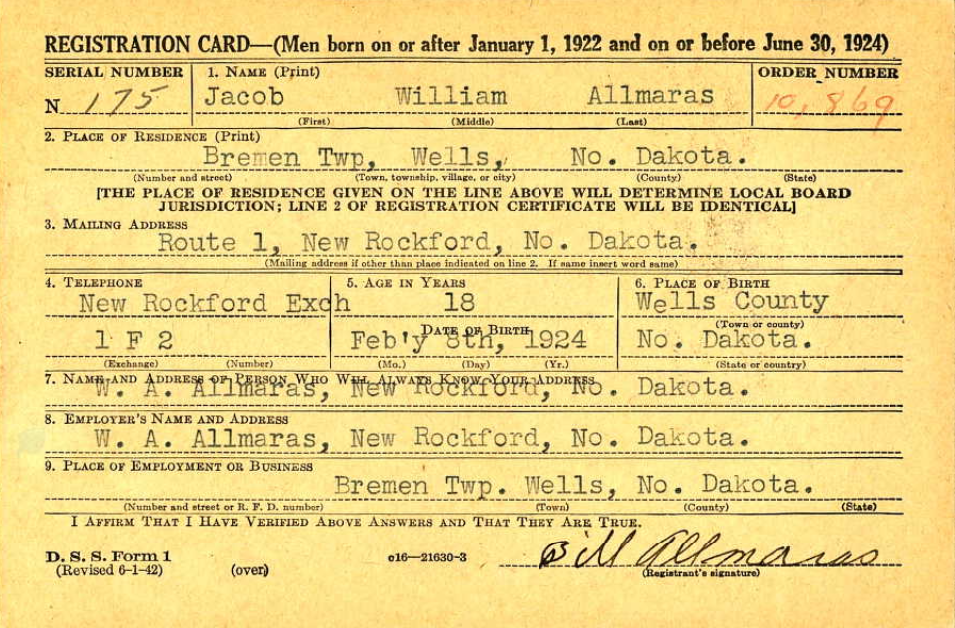 REGISTRATION CARD—(Men born on or after January 1, 1922 and on or before June 30, 1924)
SERIAL NUMBER 1. NAME (Print) ORDER NUMBER
N 175 Jacob William Allmaras 10,869
(First) (Middle) (Last)
2. PLACE OF RESIDENCE (Print)
Bremen Twp, Wells, No. Dakota.
(Number and street) (Town, township, village, or city) (County) (State)
[THE PLACE OF RESIDENCE GIVEN ON THE LINE ABOVE WILL DETERMINE LOCAL BOARD
JURISDICTION; LINE 2 OF REGISTRATION CERTIFICATE WILL BE IDENTICAL]
3. MAILING ADDRESS
Route 1, New Rockford, No. Dakota.
(Mailing address if other than place indicated on line 2. If same insert word same)
4. TELEPHONE 5. AGE IN YEARS 6. PLACE OF BIRTH
New Rockford Exch 18 Wells County
DATE OF BIRTH (Town or county)
1 F 2 Feb'y 8th, 1924 No. Dakota.
(Exchange) (Number) (Mo.) (Day) (Yr.) (State or country)
7. NAME AND ADDRESS OF PERSON WHO WILL ALWAYS KNOW YOUR ADDRESS
W. A. Allmaras, New Rockford, No. Dakota.
8. EMPLOYER'S NAME AND ADDRESS
W. A. Allmaras, New Rockford, No. Dakota.
9. PLACE OF EMPLOYMENT OR BUSINESS
Bremen Twp. Wells, No. Dakota.
(Number and street or R. F. D. number) (Town) (County) (State)
I AFFIRM THAT I HAVE VERIFIED ABOVE ANSWERS AND THAT THEY ARE TRUE.
D. S. S. Form 1 c16—21630-3 Bill Allmaras
(Revised 6-1-42) (over) (Registrant's signature)